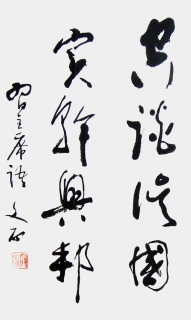 空谈误国
实干兴邦
习主席语 文石